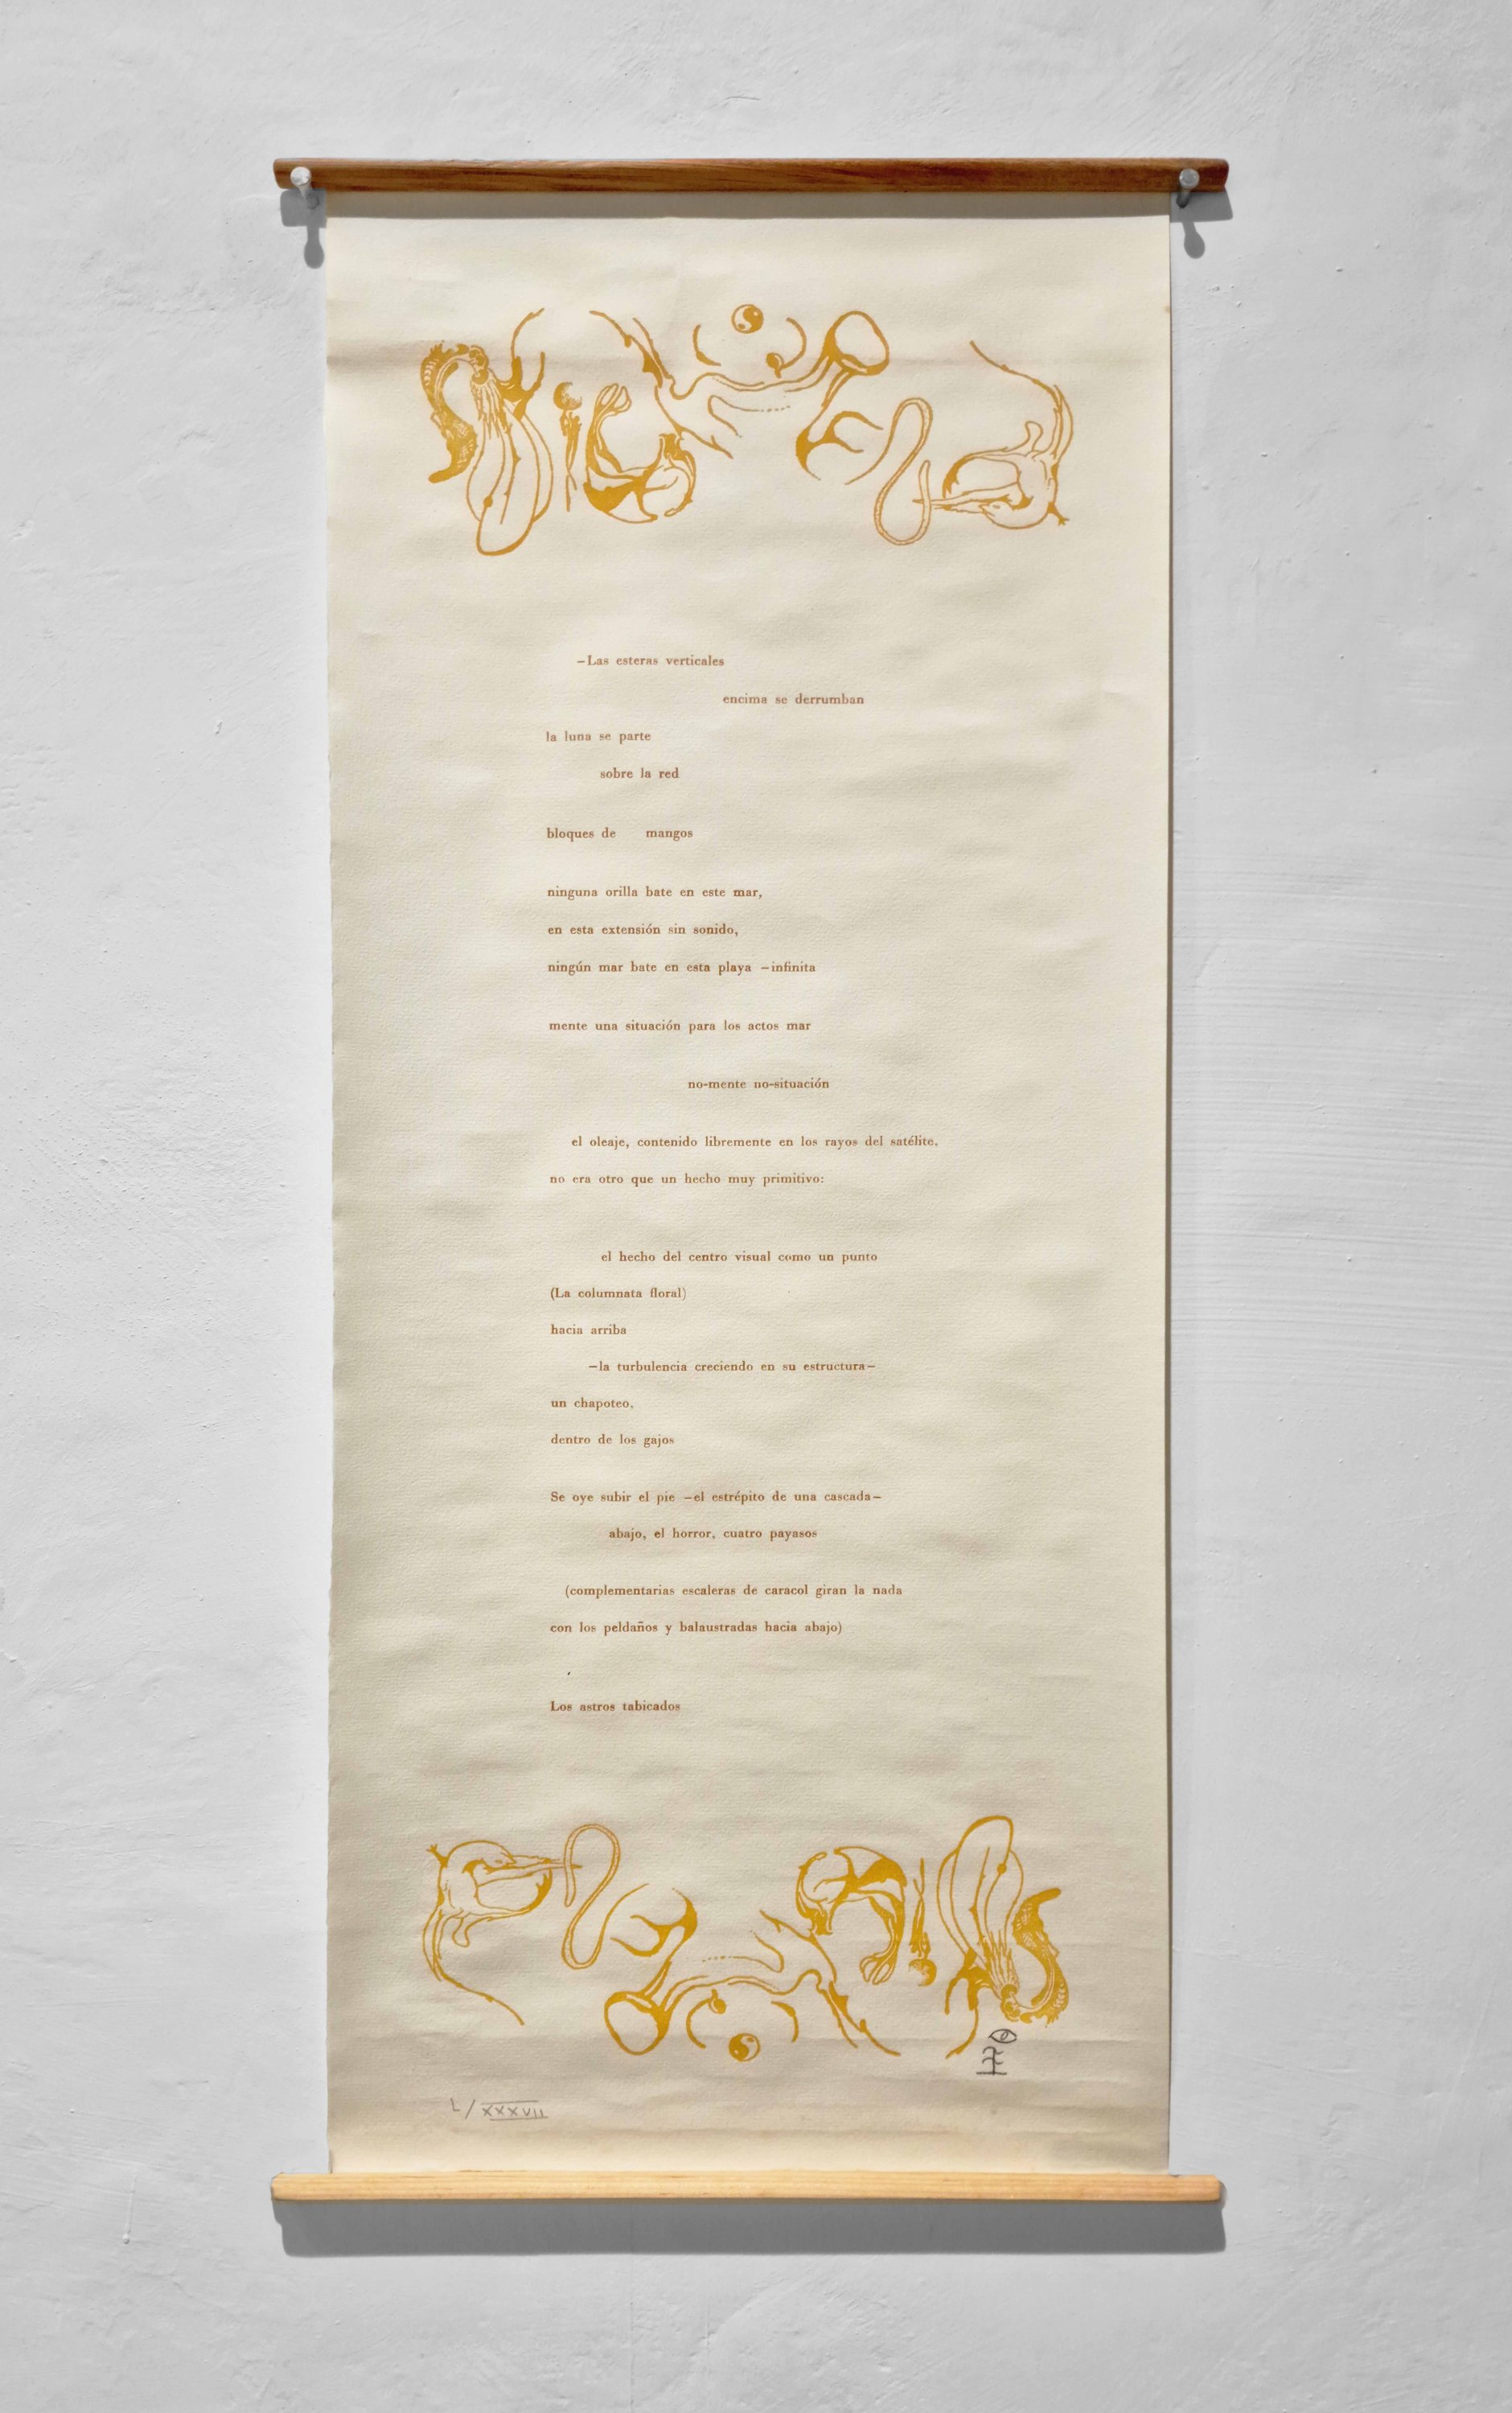 —Las esteras verticales
encima se derrumban
la luna se parte
sobre la red
bloques de mangos
ninguna orilla bate en este mar,
en esta extensión sin sonido,
ningún mar bate en esta playa —infinita
mente una situación para los actos mar
no-mente no-situación
el oleaje, contenido libremente en los rayos del satélite,
no era otro que un hecho muy primitivo:
el hecho del centro visual como un punto
(La columnata floral)
hacia arriba
—la turbulencia creciendo en su estructura—
un chapoteo,
dentro de los gajos
Se oye subir el pie —el estrépito de una cascada—
abajo, el horror, cuatro payasos
(complementarias escaleras de caracol giran la nada
con los peldaños y balaustradas hacia abajo)
Los astros tabicados
L/XXXVII